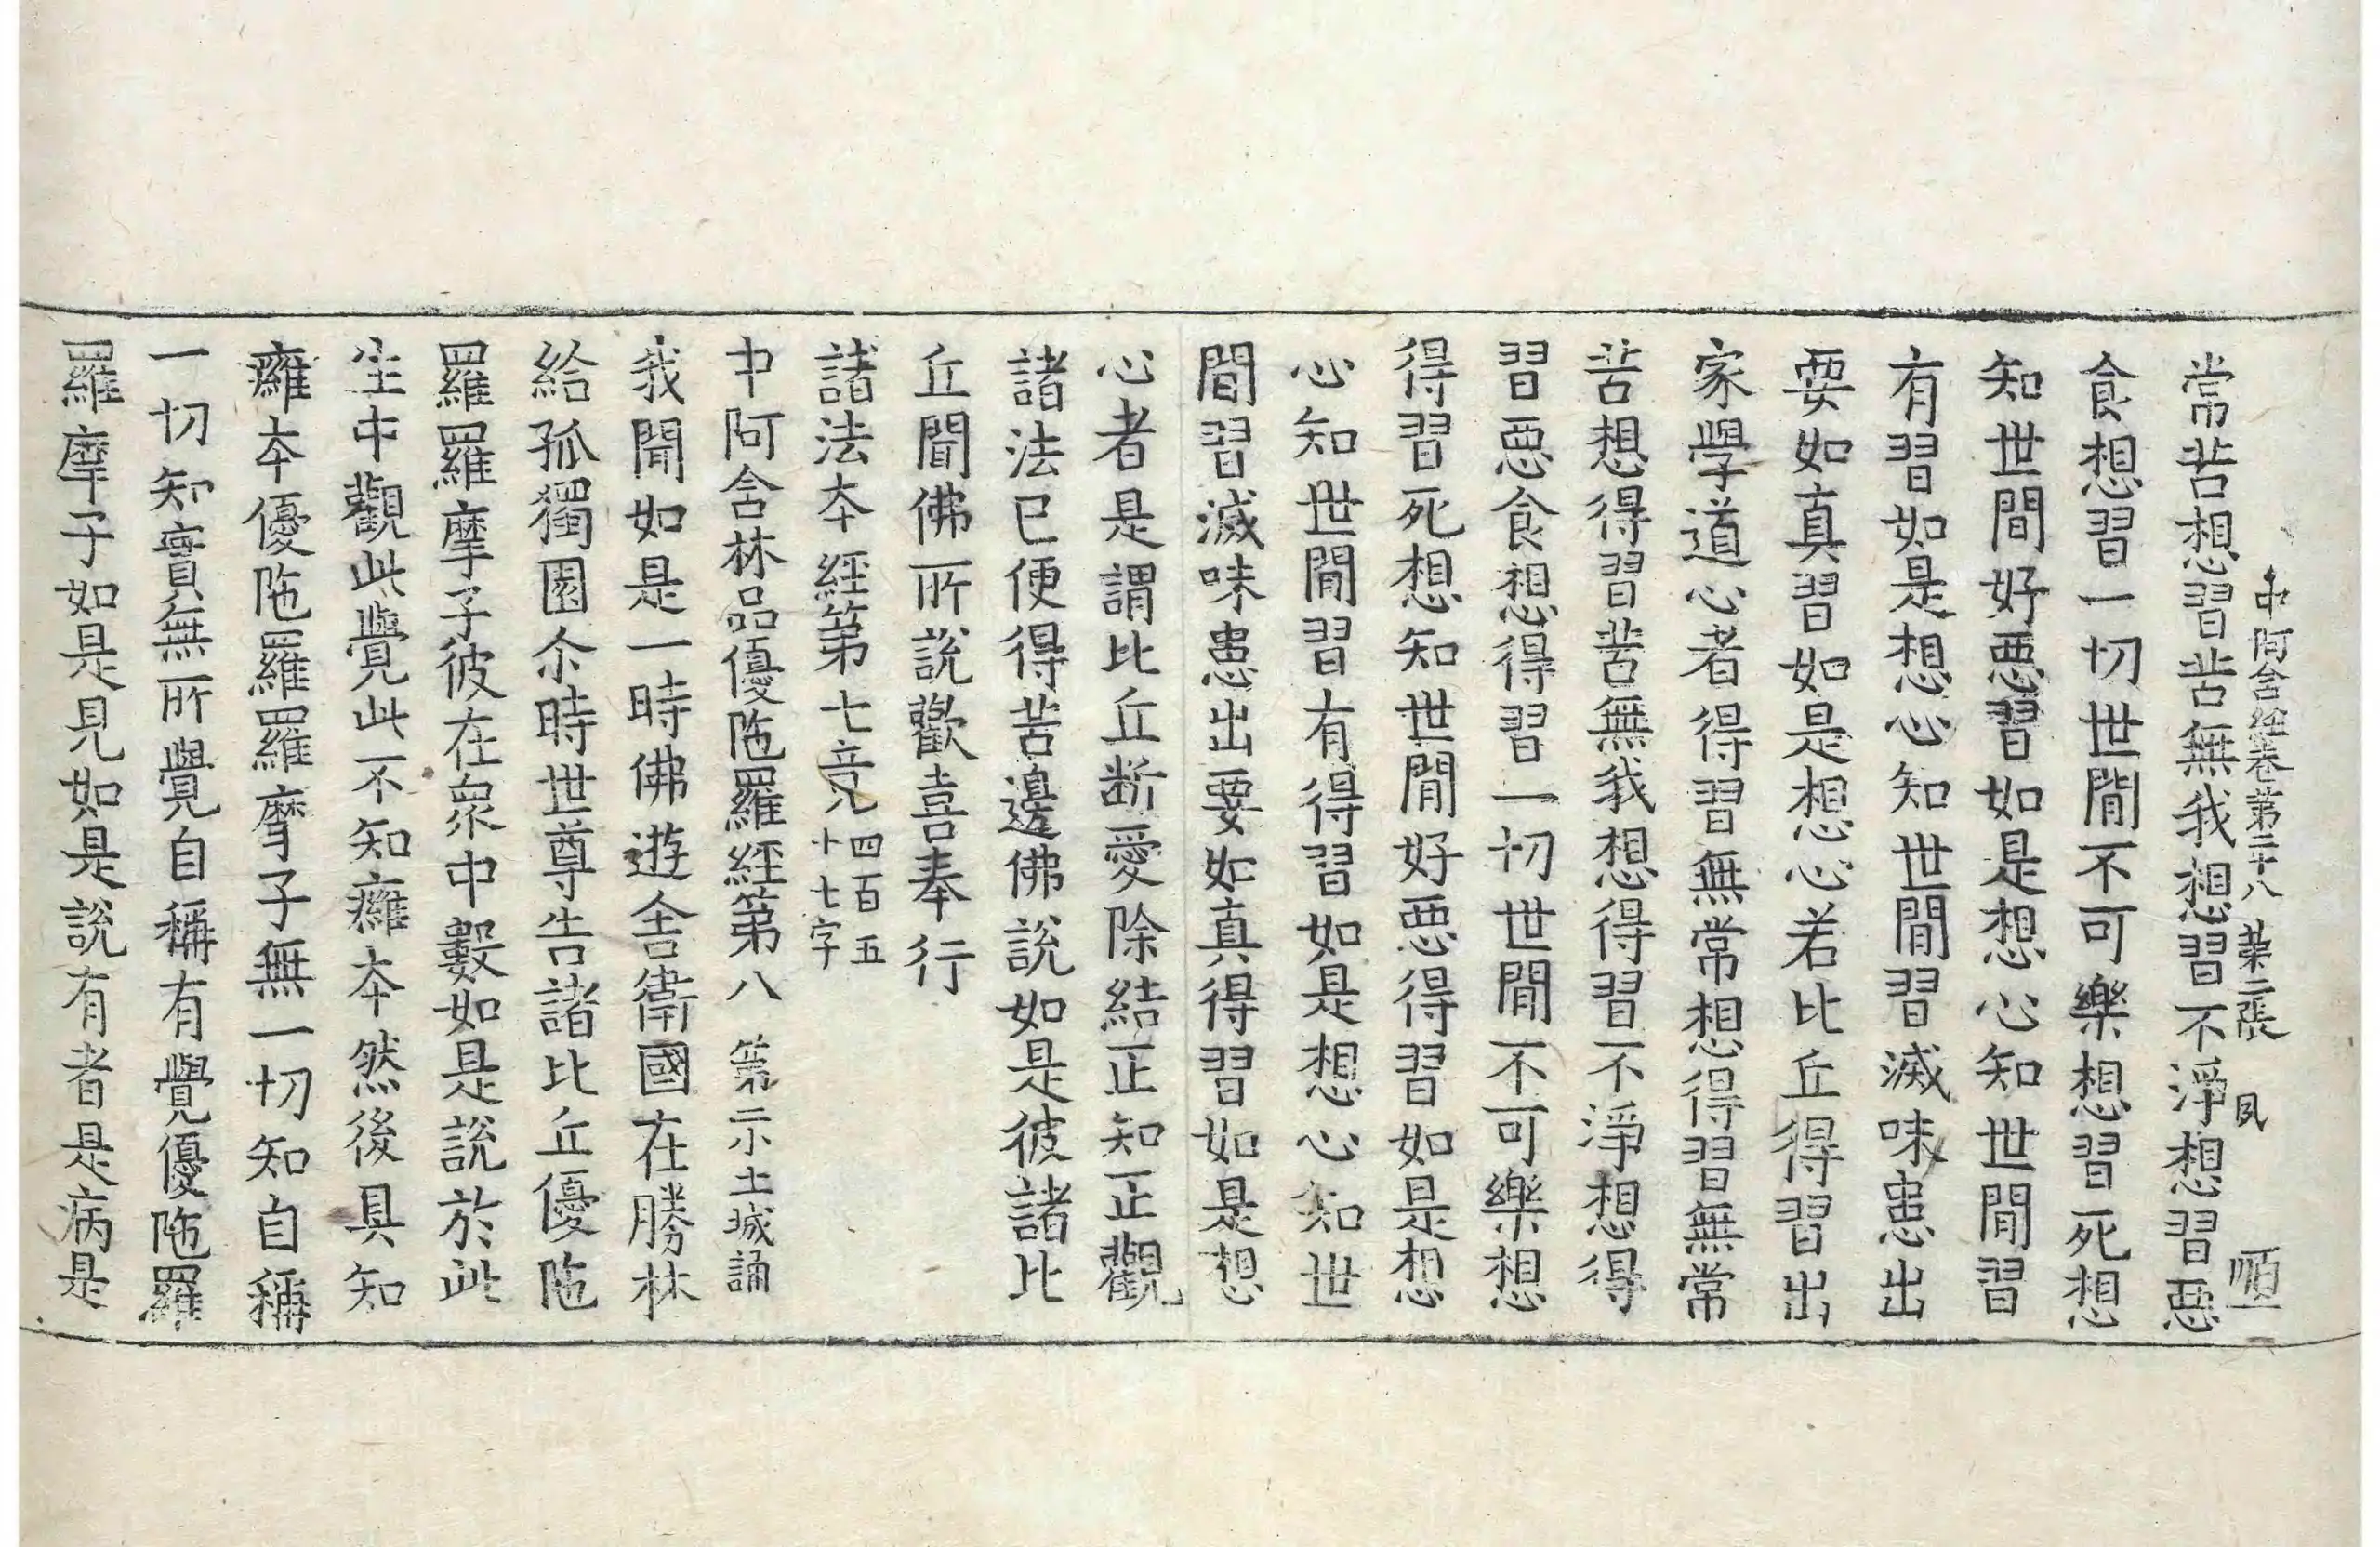 中阿含經卷第二十八 第二張 夙 順
常苦想習苦無我想習不淨想習惡
食想習一切世閒不可樂想習死想
知世間好惡習如是想心知世閒習
有習如是想心知世閒習滅味患出
要如真習如是想心若比丘得習出
家學道心者得習無常想得習無常
苦想得習苦無我想得習不淨想得
習惡食想得習一切世閒不可樂想
得習死想知世閒好惡得習如是想
心知世閒習有得習如是想心知世
間習滅味患出要如真得習如是想
心者是謂比丘断愛除結正知正觀
諸法已便得苦邊佛說如是彼諸比
丘聞佛所說歡喜奉行
諸法夲經第七竟四百五十七字
中阿含林品優陁羅經第八 第二小土城誦
我聞如是一時佛遊舍衛國在勝林
給孤獨園尒時世尊告諸比丘優陁
羅羅摩子彼在衆中數如是說於此
生中觀此覺此不知癰夲然後具知
癰夲優陁羅羅摩子無一切知自稱
一切知實無所覺自稱有覺優陁羅
羅摩子如是見如是說有者是病是